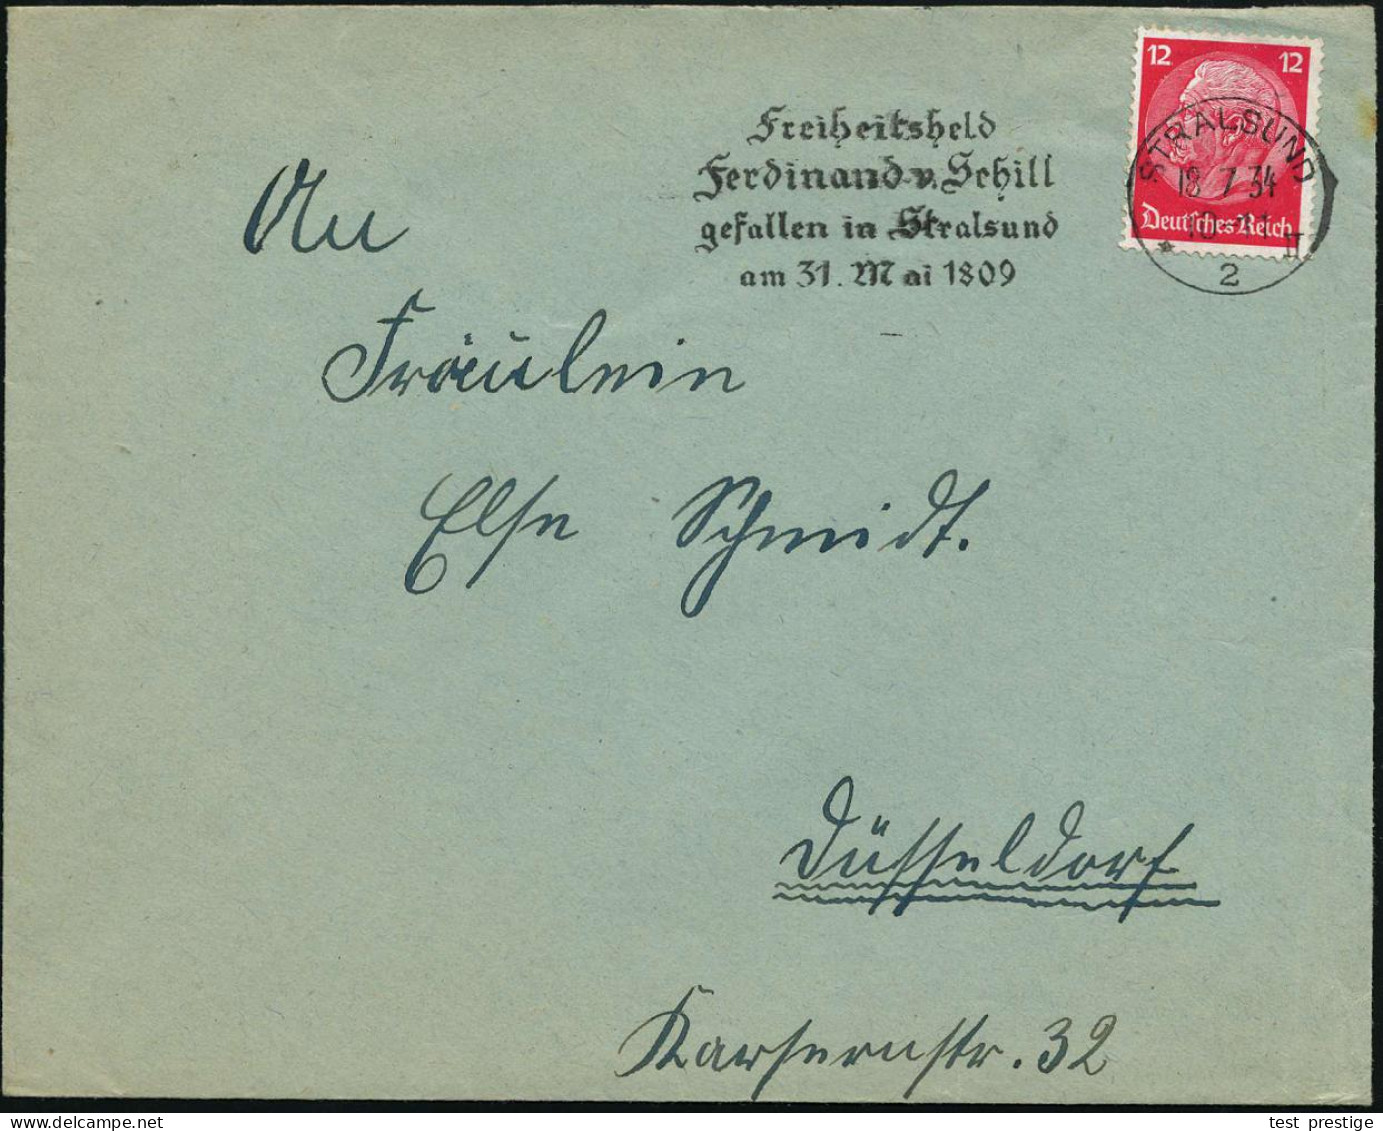 12 12
Freiheitsheld
Ferdinand v. Schill
gefallen in Stralsund
am 31. Mai 1809
STRALSUND
18 7 34
Deutsches Reich
* 2
An
Fräulein
Else Schmidt.
Düsseldorf
32
test prestige